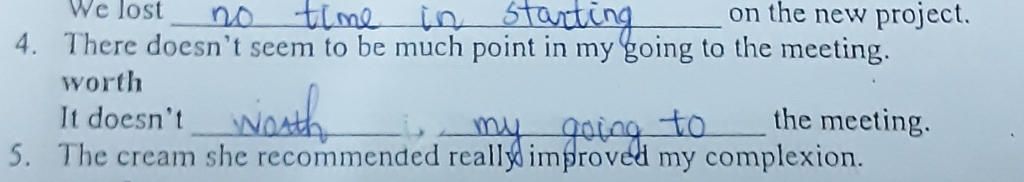 We lost no time in starting on the new project.
4. There doesn't seem to be much point in my going to the meeting.
worth
It doesn't worth my going to the meeting.
5. The cream she recommended really improved my complexion.